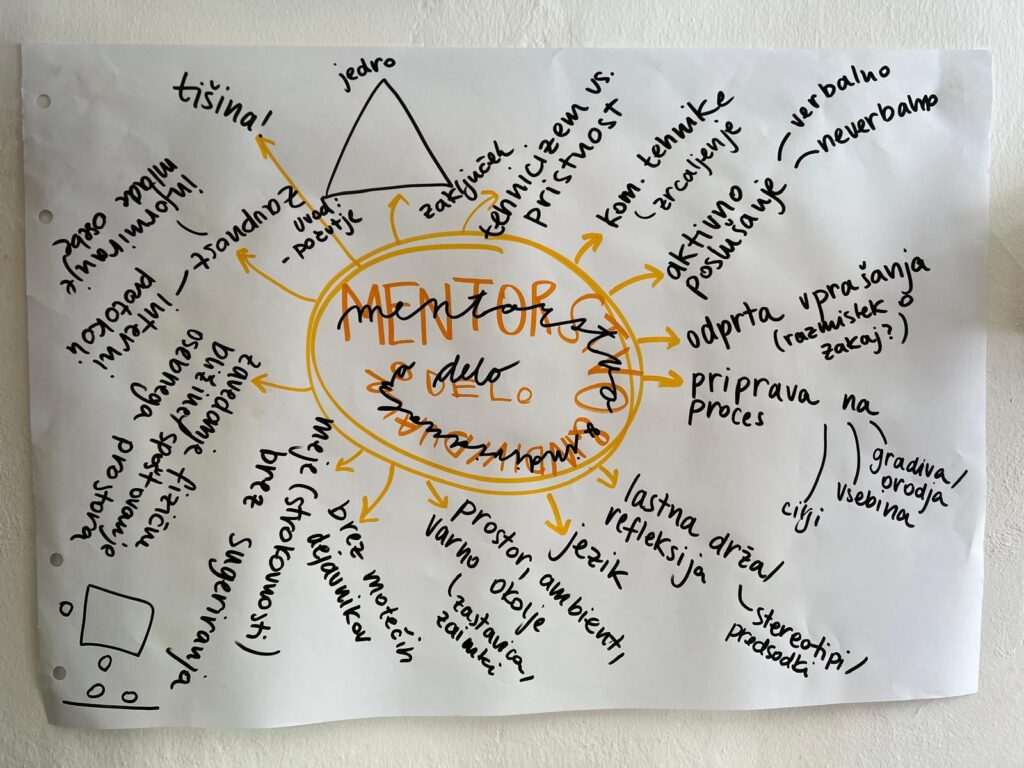 MENTORSTVO
mentorstvo
& DELO
& delo
individualno
tišina!
jedro
uvod:
- pozitje
zaključek
tehnicizem vs.
pristnost
kom. tehnike
zrcaljenje
aktivno
poslušanje
verbalno
neverbalno
odprta vprašanja
(razmislek o
zakaj?)
priprava na
proces
cilji
vsebina
gradiva/
orodja
lastna drža/
refleksija
stereotipi/
predsodki
jezik
prostor, ambient,
varno okolje
(zastavica,
zaimki
brez motečih
dejavnikov
meje (strokovnosti)
brez sugeriranja
zavedanje fizične
bližine/spoštovanje
osebnega prostora
zaupnost
interni
protokoli
informiranje
mlade osebe